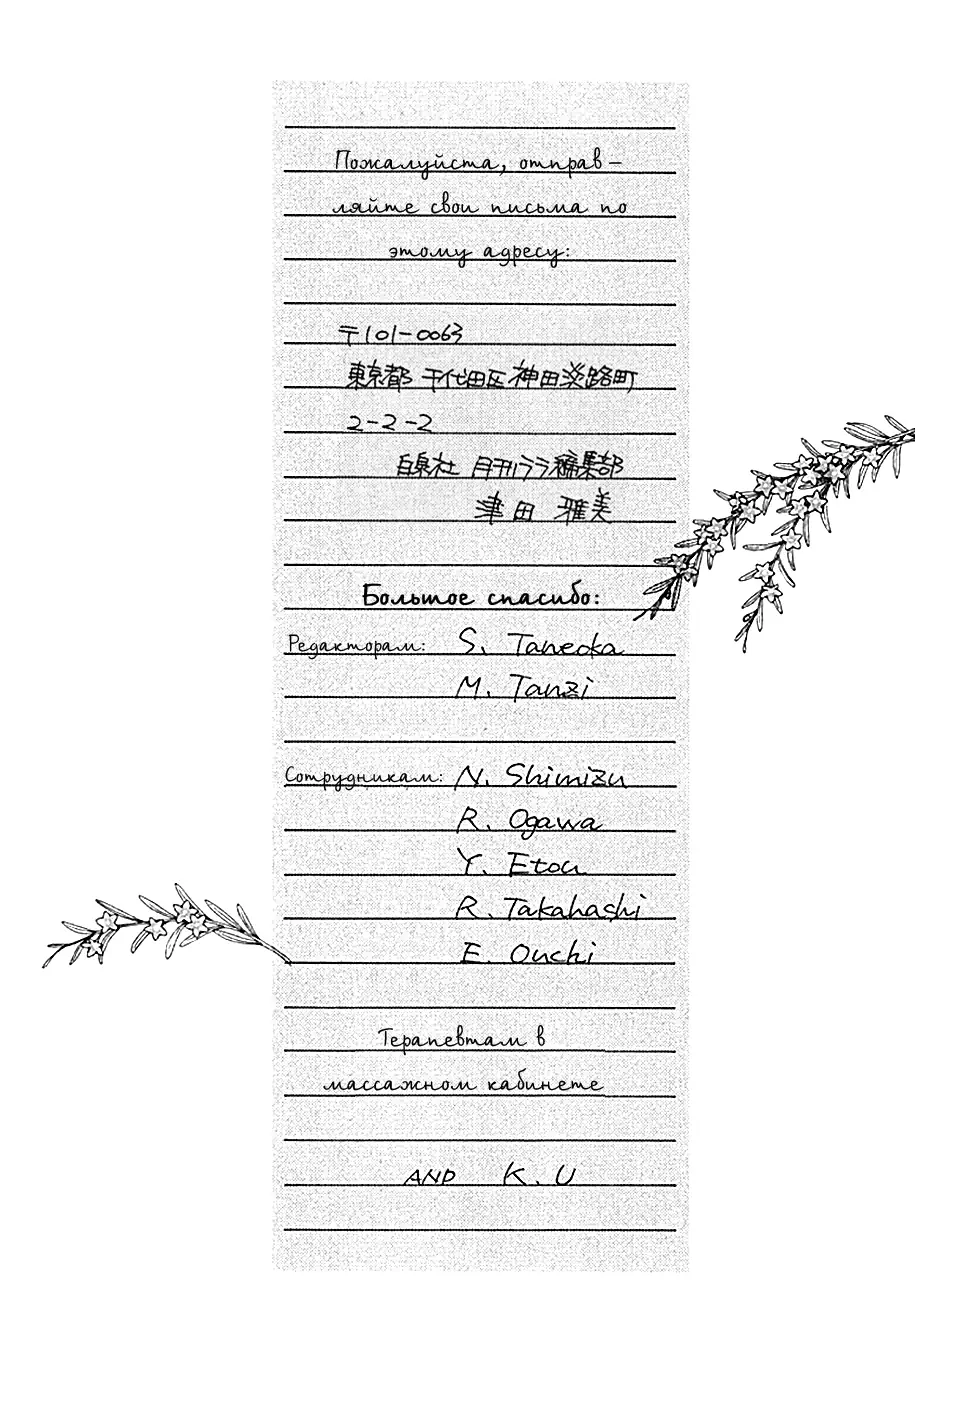 Пожалуйста, отправ-
ляйте свои письма по
этому адресу:
〒101-0063
東京都 千代田区神田淡路町
2-2-2
白泉社 月刊ララ編集部
津田 雅美
Большое спасибо:
Редакторам: S. Taneoka
M. Tanzi
Сотрудникам: N. Shimizu
R. Ogawa
Y. Etou
R. Takahashi
E. Ouchi
Терапевтам в
массажном кабинете
AND K.U